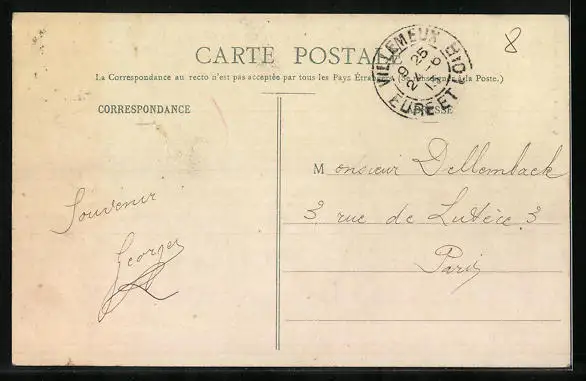 8
CARTE POSTALE
La Correspondance au recto n'est pas acceptée par tous les Pays Étrangers (Se renseigner à la Poste.)
VILLEMEUX
EURE ET LOIR
CORRESPONDANCE
ADRESSE
Monsieur Dellembach
3 rue de Lutèce 3
Paris
Souvenir
Georges